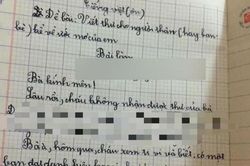 Tiếng việt (ôn)
Đề bài: Viết thư cho người thân (hay bạn
bè) kể về ước mơ của em
Bài làm
Bà kính mến!
Lâu rồi, cháu không nhận được thư của bà
Bà à, hôm qua, cháu xem ti vi và biết, có một
bạn đạt danh hiệu